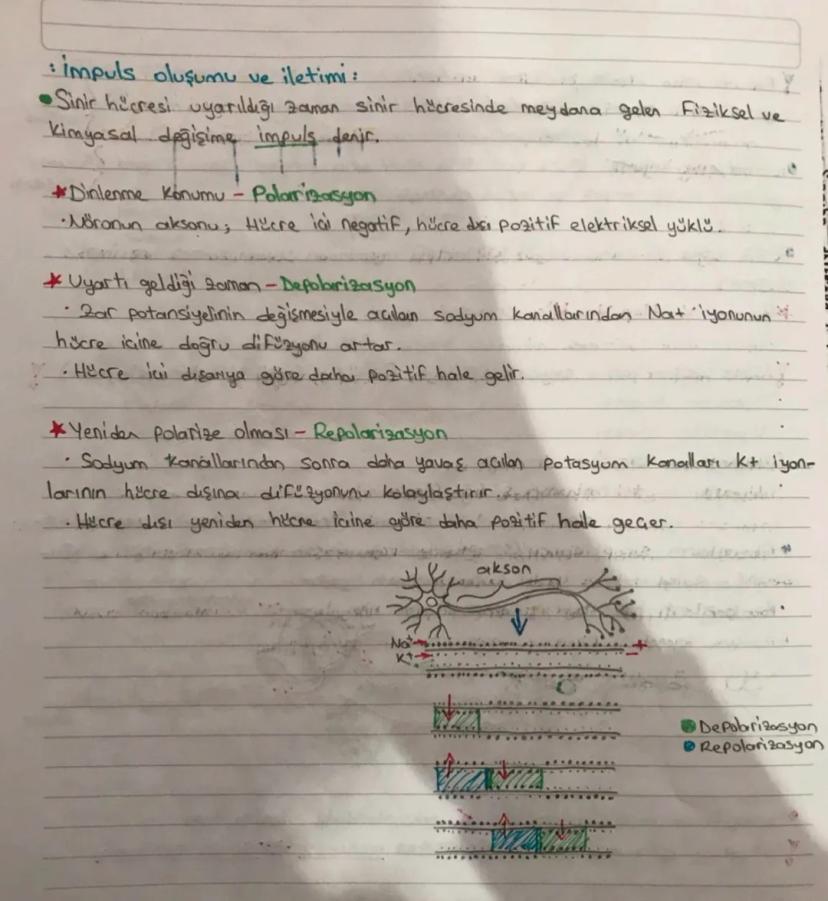 : impuls oluşumu ve iletimi :
• Sinir hücresi uyarıldığı zaman sinir hücresinde meydana gelen Fiziksel ve
kimyasal değişime impuls denir.
* Dinlenme konumu - Polarizasyon
• Nöronun aksonu; Hücre içi negatif, hücre dışı pozitif elektriksel yüklü.
* Uyartı geldiği zaman - Depolarizasyon
• Zar potansiyelinin değişmesiyle açılan sodyum kanallarından Na+ iyonunun
hücre içine doğru difüzyonu artar.
• Hücre içi dışarıya göre daha pozitif hale gelir.
* Yeniden polarize olması - Repolarizasyon
• Sodyum kanallarından sonra daha yavaş açılan potasyum kanalları K+ iyon-
larının hücre dışına difüzyonunu kolaylaştırır.
• Hücre dışı yeniden hücre içine göre daha pozitif hale geçer.
akson
Na+ +
K+ -
Depolarizasyon
Repolarizasyon